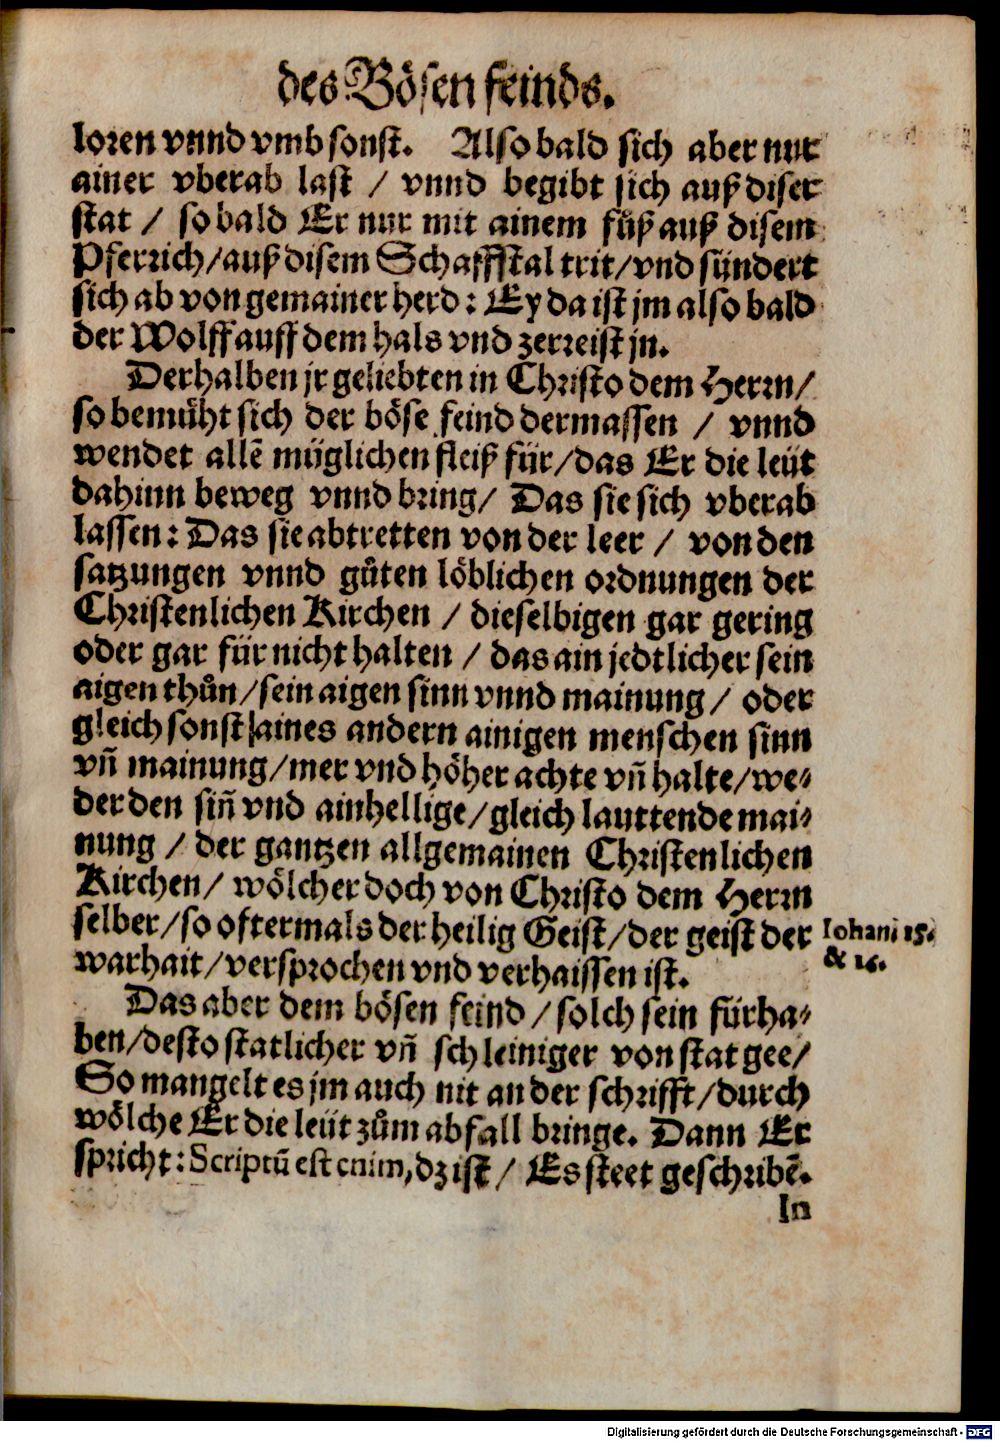 des Bösen feinds.
loren vnnd vmb sonst. Also bald sich aber nur
ainer vberab last / vnnd begibt sich auß diser
stat / so bald Er nur mit ainem fůß auß disem
Pferrich/auß disem Schaffstal trit/vnd sündert
sich ab von gemainer herd: Ey da ist jm also bald
der Wolff auff dem hals vnd zerreist jn.
Derhalben jr geliebten in Christo dem Herrn/
so bemüht sich der böse feind dermassen / vnnd
wendet allē müglichen fleiß für/das Er die leüt
dahinn beweg vnnd bring/ Das sie sich vberab
lassen: Das sie abtretten von der leer / von den
satzungen vnnd gůten löblichen ordnungen der
Christenlichen Kirchen / dieselbigen gar gering
oder gar für nicht halten / das ain jedtlicher sein
aigen thůn/sein aigen sinn vnnd mainung/ oder
gleich sonst aines andern ainigen menschen sinn
vn̄ mainung/mer vnd höher achte vn̄ halte/we⸗
der den sin̄ vnd ainhellige/gleich lauttende mai⸗
nung / der gantzen allgemainen Christenlichen
Kirchen/ wölcher doch von Christo dem Herrn
selber/so oftermals der heilig Geist/der geist der
Iohani 15.
& 16.
warhait/versprochen vnd verhaissen ist.
Das aber dem bösen feind / solch sein fürha⸗
ben/desto statlicher vn̄ schleiniger von stat gee/
So mangelt es jm auch nit an der schrifft/durch
wölche Er die leüt zům abfall bringe. Dann Er
spricht: Scriptū est enim, dz ist / Es steet geschribē.
In
Digitalisierung gefördert durch die Deutsche Forschungsgemeinschaft - DFG